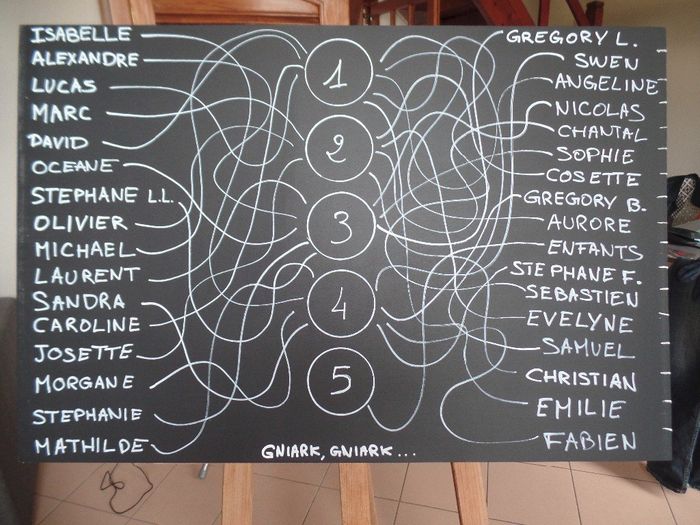 ISABELLE
ALEXANDRE
LUCAS
MARC
DAVID
OCEANE
STEPHANE L.L.
OLIVIER
MICHAEL
LAURENT
SANDRA
CAROLINE
JOSETTE
MORGANE
STEPHANIE
MATHILDE
1
2
3
4
5
GNIARK, GNIARK...
GREGORY L.
SWEN
ANGELINE
NICOLAS
CHANTAL
SOPHIE
COSETTE
GREGORY B.
AURORE
ENFANTS
STEPHANE F.
SEBASTIEN
EVELYNE
SAMUEL
CHRISTIAN
EMILIE
FABIEN